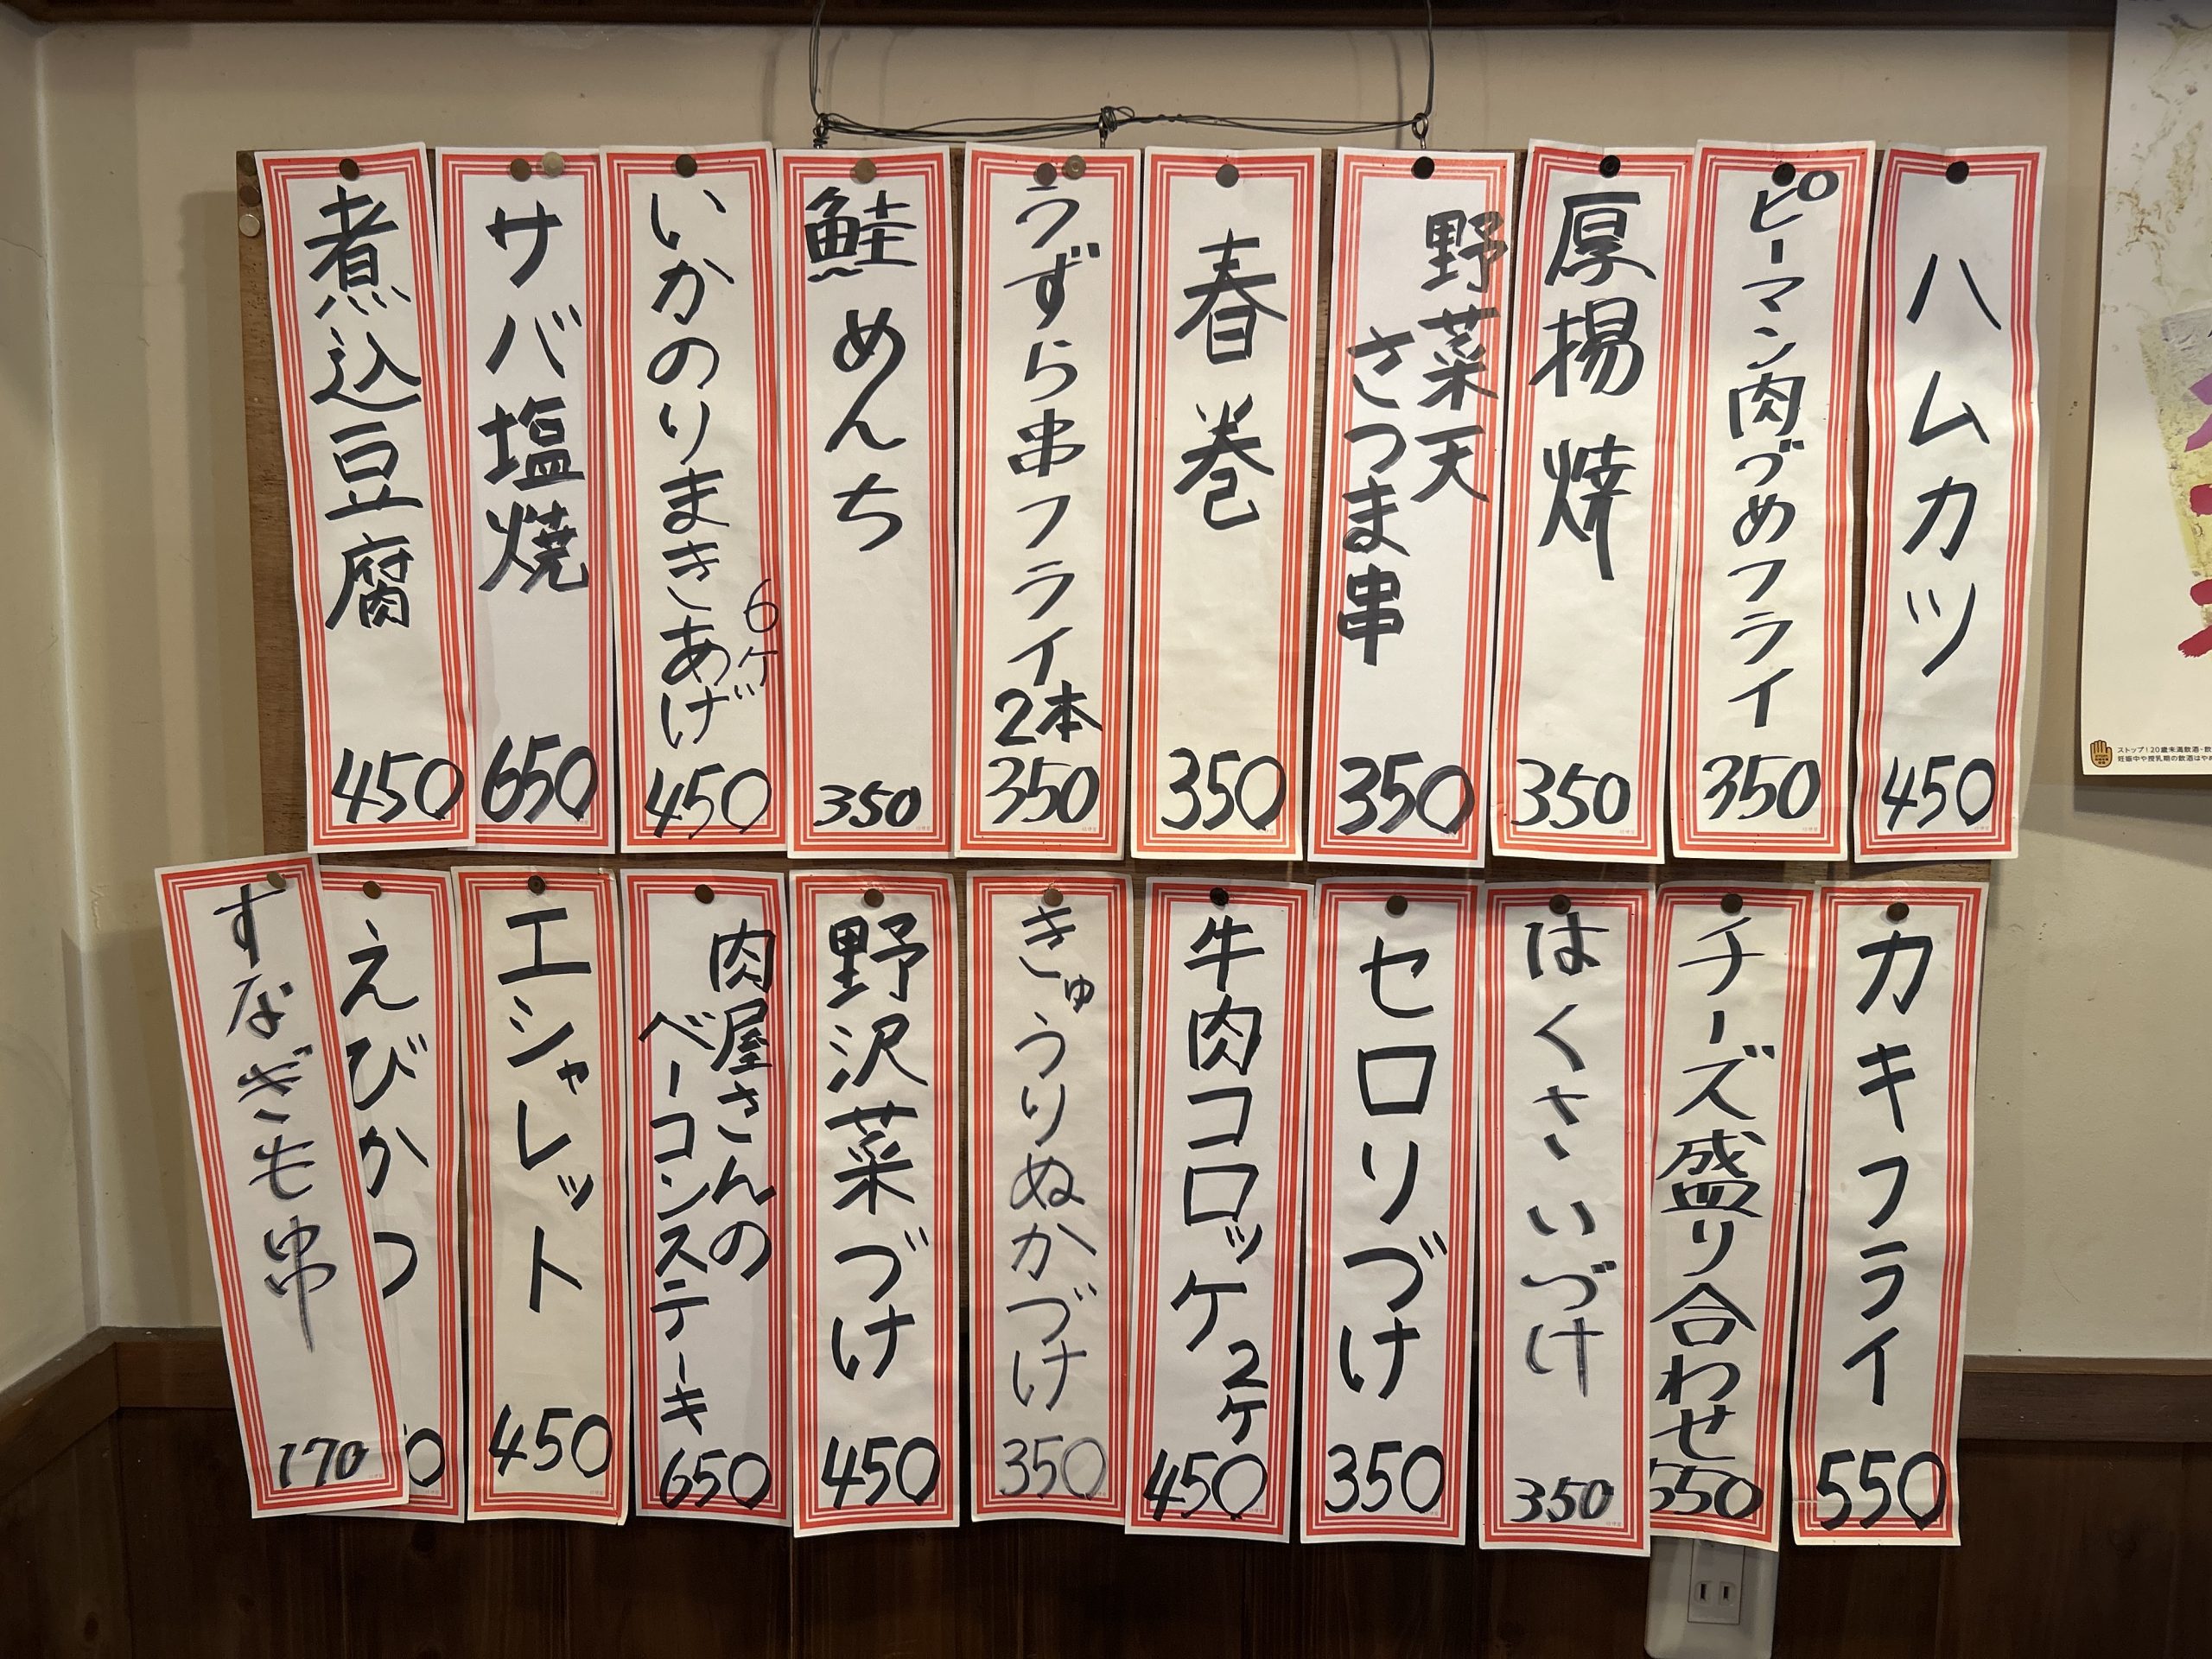 ハムカツ
450
ピーマン肉づめフライ
350
厚揚焼
350
野菜天
さつま串
350
春巻
350
うずら串フライ
2本
350
鮭めんち
350
いかのりまきあげ
6ケ
450
サバ塩焼
650
煮込豆腐
450
カキフライ
550
チーズ盛り合わせ
550
はくさいづけ
350
セロリづけ
350
牛肉コロッケ
2ケ
450
きゅうりぬかづけ
350
野沢菜づけ
450
肉屋さんの
ベーコンステーキ
650
エシャレット
450
えびかつ
すなぎも串
170
ストップ!20歳未満飲酒・飲
妊娠中や授乳期の飲酒はやめ